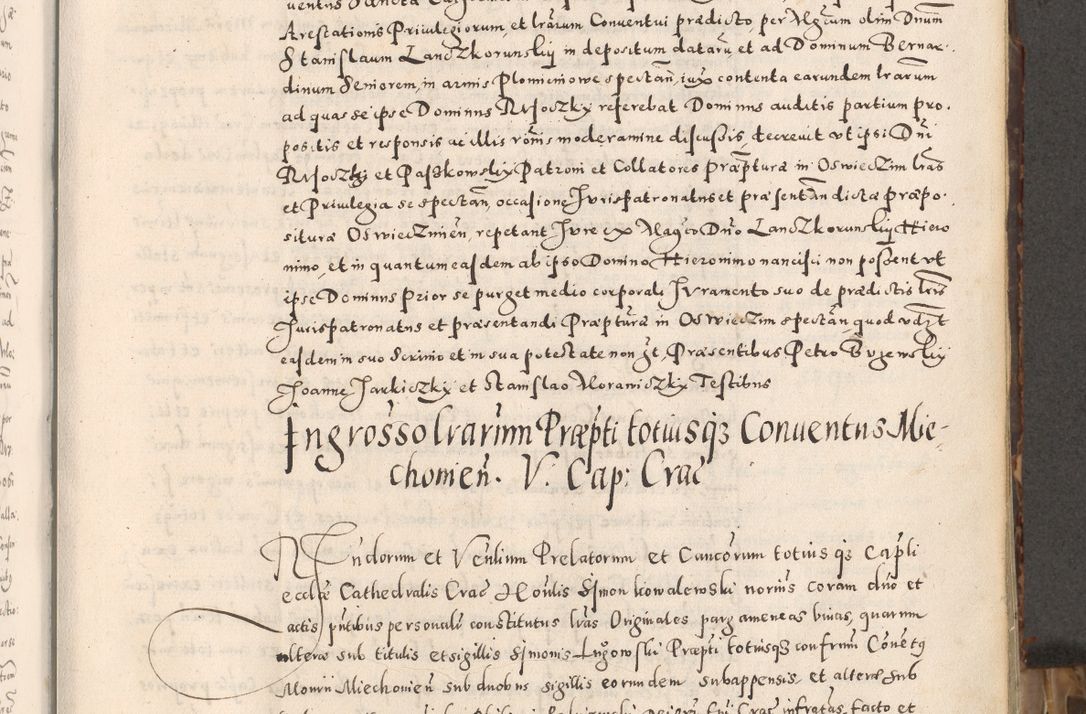 Arestationis Priuilegiorum, et lrarum Conuentui prædicto, per Mgcum olim Dnum
Stanislaum Lanczkorunskij in depositum dataru, et ad Dominum Bernar-
dinum Seniorem, in armis Plomieniowe spectan, iux contenta earundem lrarum
ad quas se ipse Dominus Rusoczky referebat Dominus auditis partium pro-
positis et responsis ac illis ronis moderamine discussis, decreuit vt ipsi Dni
Rusoczky et Paszkowsky Patroni et Collatores Præpturæ in Oswieczim lras
et Priuilegia se spectan, occasione Jurispatronatus et præsentan dictæ Præpo-
situræ Oswiecimen, repetant Jure ex Magco Dno Lanczkorunskij Hiero
nimo, et in quantum easdem ab ipso Domino Hieronimo nancisci non possent vt
ipse Dominus Prior se purget medio corporali Juramento suo de prædictis lris
Jurispatronatus et præsentandi Præpturæ in Oswieczim spectan, quod vdzt
easdem in suo Scrinio et in sua potestate non hzt, Præsentibus Petro Bugewskij
Joanne Jarkiczky et Stanislao Moraniczky Testibus
Ingrosso lrarum Præpti totiusqz Conuentus Mie-
chomien. V. Cap: Crac
Rndorum et Venlium Prelatorum et Cancorum totius qz Capli
ecclæ Cathedralis Crac Honlis Simon Kowalewski norius coram dno et
actis pntibus personalr constitutus lras Originales pargameneas binas, quarum
alteræ sub titulis et sigillis Simonis Lugowski Præpti totiusqz confrum Conetq
Monrii Miechomien sub duobus sigillis eorundem subappensis, et alteræ sub